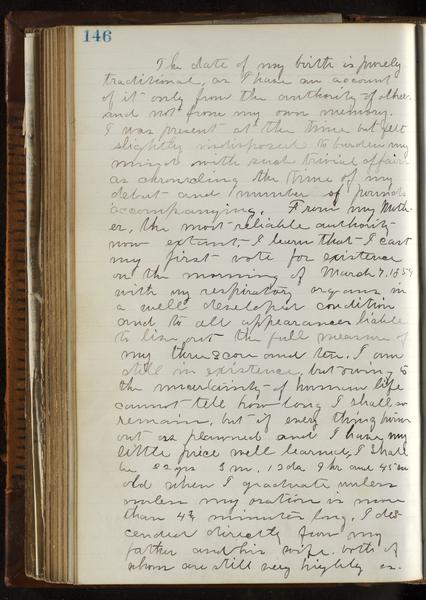 146
The date of my birth is purely
traditional, as I have an account
of it only from the authority of others
and not from my own memory.
I was present at the time but felt
slightly indisposed to burden my
mind with such trivial affairs
as chronicling the time of my
debut and number of pounds
accompanying. From my Moth-
er, the most reliable authority
now extant, I learn that I cast
my first vote for existence
on the morning of March 7, 1859
with my respiratory organs in
a well developed condition
and to all appearances liable
to live out the full measure of
my three score and ten. I am
still in existence, but owing to
the uncertainty of human life
cannot tell how long I shall so
remain, but if every thing turns
out as planned and I have my
little piece well learned, I shall
be yrs 3 m. 12 da. 9 hr and 45
old when I graduate unless
unless my oration is more
than minutes long. I des-
cended directly from my
father and his wife. both of
whom are still very highly es-